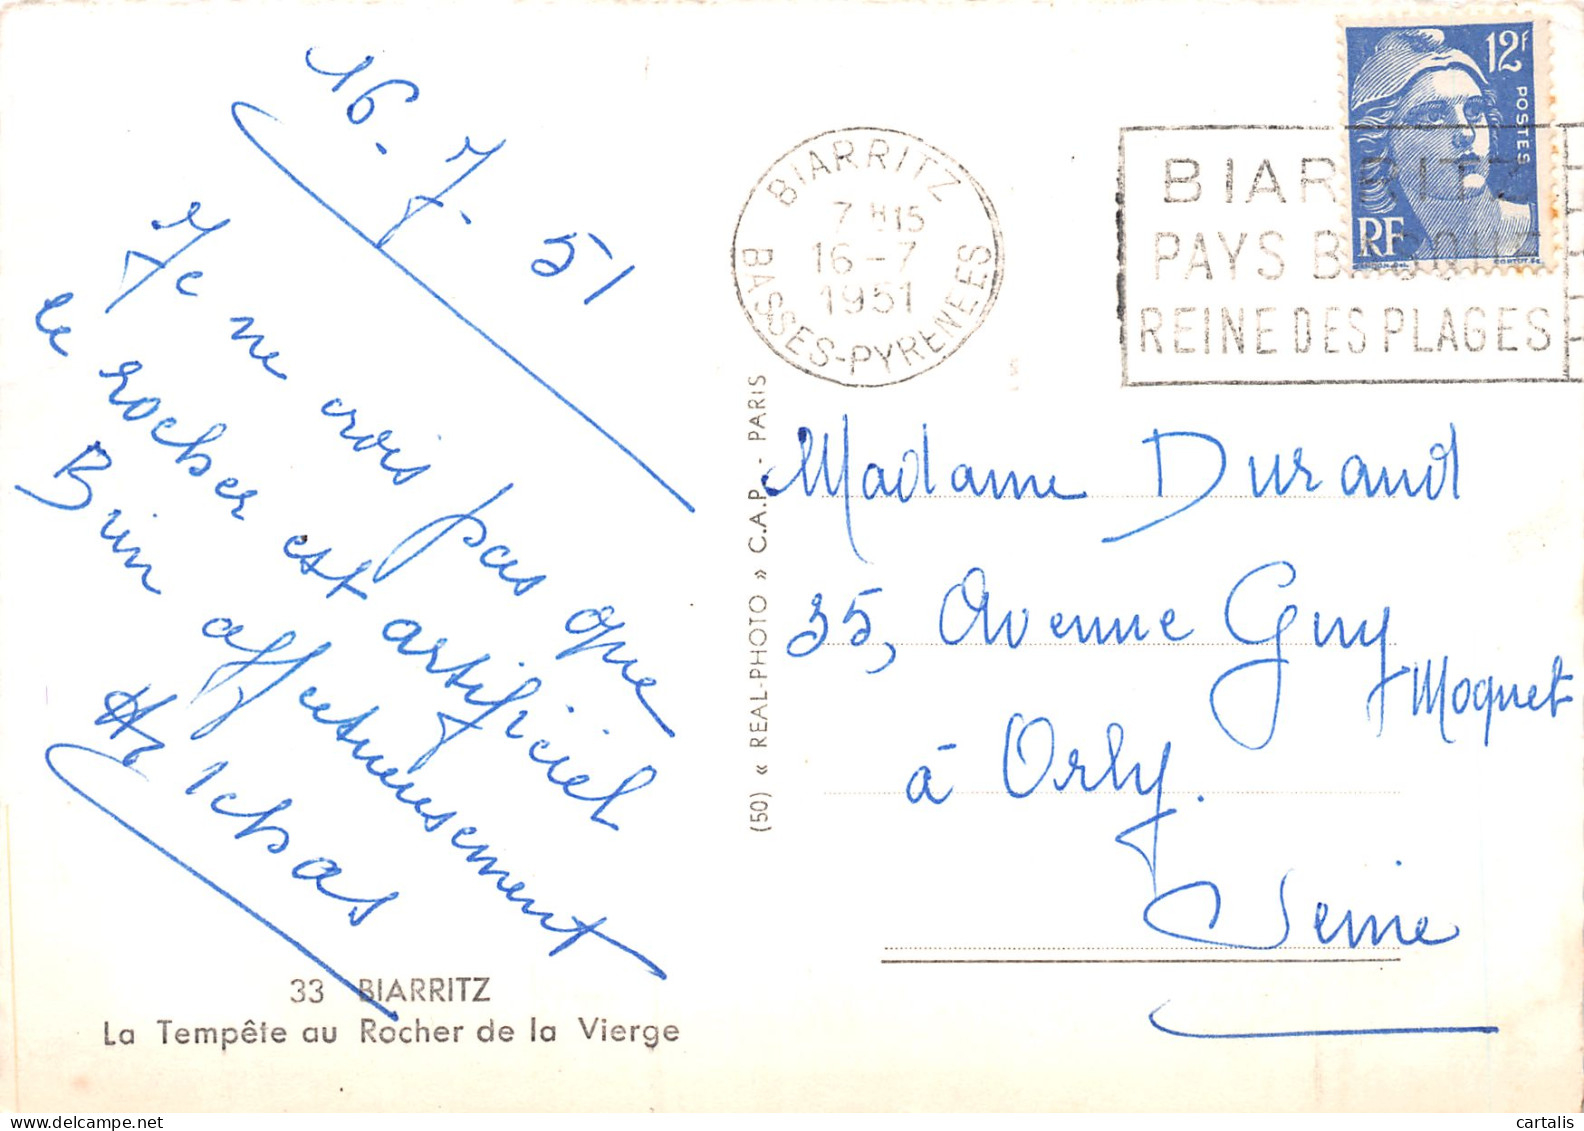 16-7-51
Je ne crois pas que
le rocher est artificiel
Bien affectueusement
33 BIARRITZ
La Tempête au Rocher de la Vierge
(50) « REAL-PHOTO » C.A.P. - PARIS
BIARRITZ
7H15
16-7
1951
BASSES-PYRENEES
BIARRITZ
PAYS BASQUE
REINE DES PLAGES
12F
POSTES
RF
Madame Durand
35, Avenue Guy
Moquet
à Orly.
Seine
cartalis
www.delcampe.net